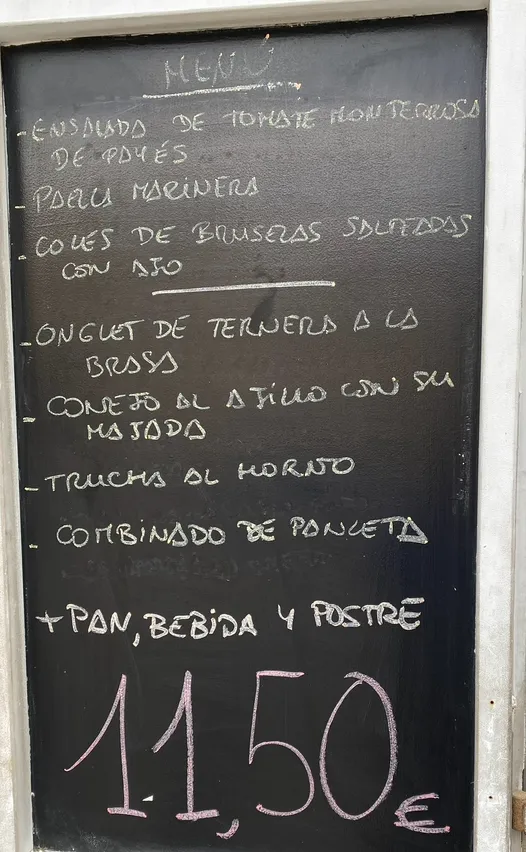 MENÚ
- ENSALADA DE TOMATE MONTERROSA
DE PAYÉS
- PAELLA MARINERA
- COLES DE BRUSELAS SALTEADAS
CON AJO
- ONGLET DE TERNERA A LA
BRASA
- CONEJO AL AJILLO CON SU
MAJADA
- TRUCHA AL HORNO
- COMBINADO DE PANCETA
+ PAN, BEBIDA Y POSTRE
11,50 €